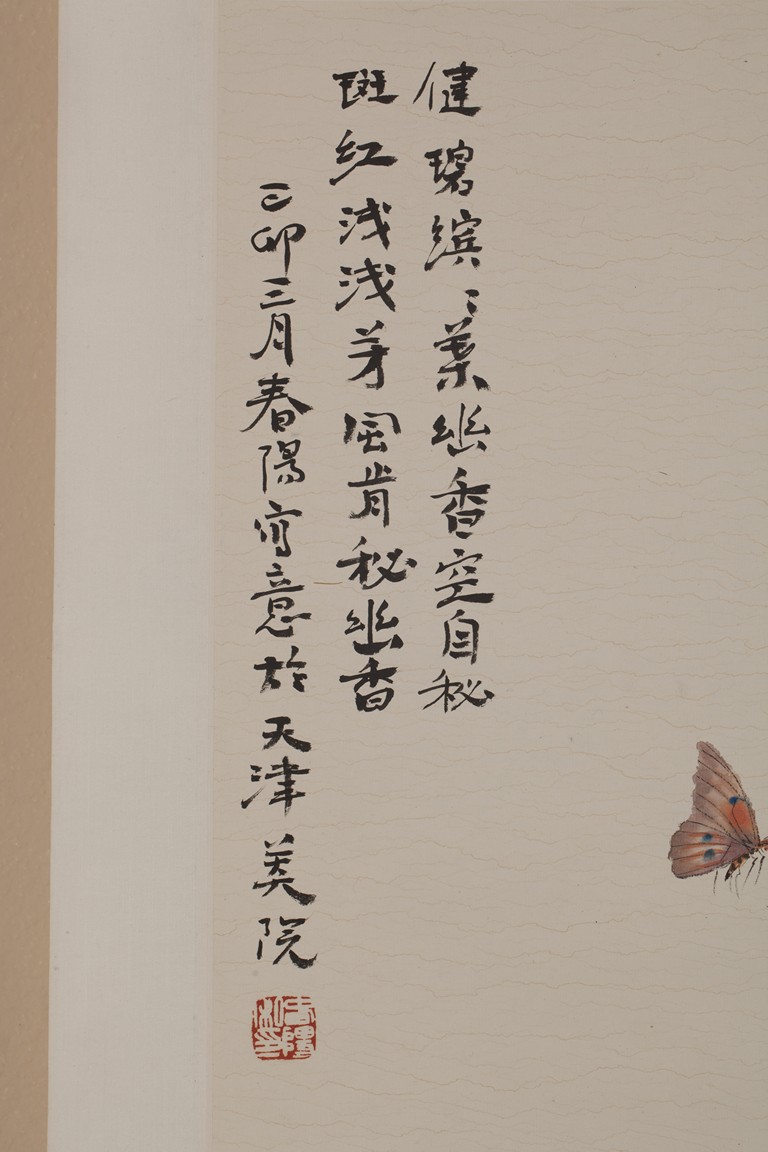 健碧缤〻葉幽香空自秘
斑红浅浅芽風肯秘幽香
己卯三月春陽寫意於天津美院